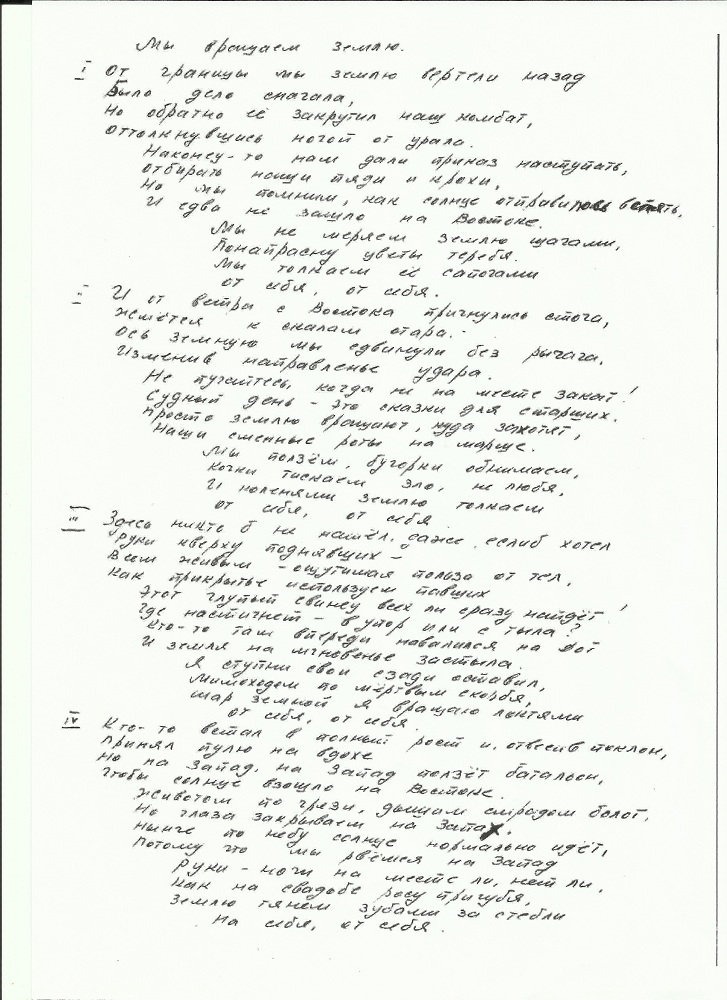 Мы вращаем землю.
I От границы мы землю вертели назад
Было дело сначала,
Но обратно её закрутил наш комбат,
Оттолкнувшись ногой от урала.
Наконец-то нам дали приказ наступать,
Отбирать наши пяди и крохи,
Но мы помним, как солнце отправилось вспять,
И едва не зашло на Востоке.
Мы не меряем землю шагами,
Понапрасну цветы теребя.
Мы толкаем её сапогами
от себя, от себя.
II И от ветра с Востока пригнулись стога,
Жмётся к скалам отара.
Ось земную мы сдвинули без рычага,
Изменив направленье удара.
Не пугайтесь, когда не на месте закат!
Судный день - это сказки для старших.
Просто землю вращают, куда захотят,
Наши сменные роты на марше.
Мы ползём, бугорки обнимаем,
Кочки тискаем зло, не любя,
И коленями землю толкаем
от себя, от себя
III Здесь никто б не нашёл, даже еслиб хотел
Руки кверху поднявших -
Всем живым - ощутимая польза от тел,
Как прикрытье используем павших
Этот глупый свинец всех ли сразу найдёт!
Где настигнет - в упор или с тыла?
Кто-то там впереди навалился на дот
И земля на мгновенье застыла.
Я ступни свои сзади оставил,
Мимоходом по мёртвым скорбя,
Шар земной я вращаю локтями
от себя, от себя.
IV Кто-то встал в полный рост и, отвесив поклон,
Принял пулю на вдохе
Но на Запад, на Запад ползёт батальон,
Чтобы солнце взошло на Востоке.
Животом по грязи, дышим смрадом болот,
Но глаза закрываем на Запах.
Нынче по небу солнце нормально идёт,
Потому что мы рвёмся на Запад
Руки - ноги на месте ли, нет ли,
Как на свадьбе росу пригубя,
Землю тянем зубами за стебли
На себя, от себя.